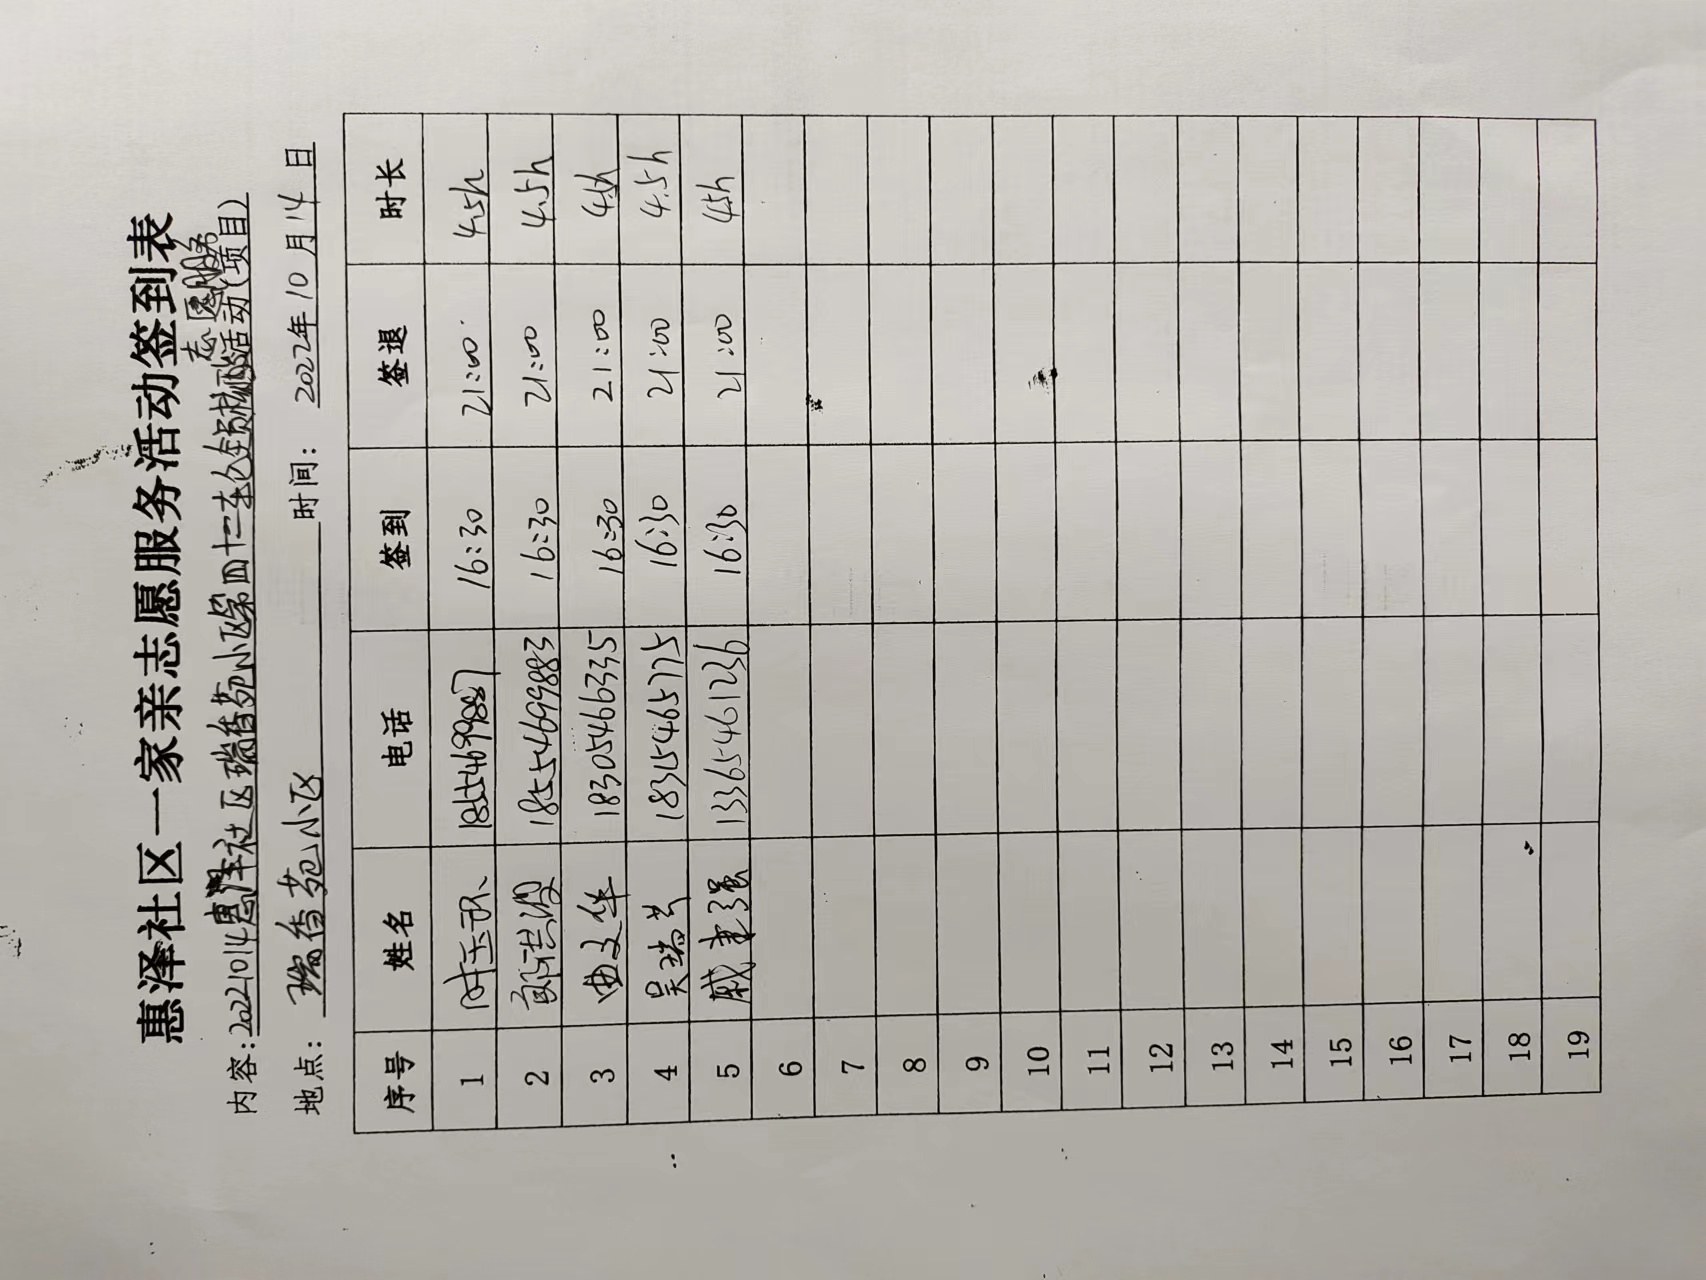 惠泽社区一家亲志愿服务活动签到表
志愿服务
内容:20221014惠泽社区瑞香苑小区第四十二轮全员核酸活动(项目)
地点: 瑞香苑小区 时间: 2022年10月14日
序号 姓名 电话 签到 签退 时长
1 18554699887 16:30 21:00 4.5h
2 18554699883 16:30 21:00 4.5h
3 曲文华 18305466335 16:30 21:00 4.5h
4 吴瑞芳 18315465775 16:30 21:00 4.5h
5 戚建强 13365461236 16:30 21:00 4.5h
6
7
8
9
10
11
12
13
14
15
16
17
18
19